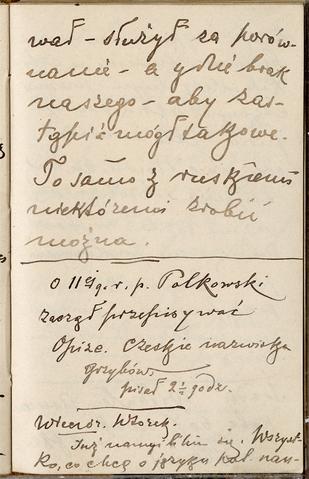 wał – służył za porów-
nanie – a gdzie brak
naszego – aby zas-
tąpić mógł takowe.
To samo z ruskiemi
niektóremi zrobić
można.
O 11ej g. r. p. Polkowski
zaczął przepisywać
Opize. Czeskie nazwiska
grzybów
pisał 2½ godz.
Wieczór. Wtorek.
Już namyśliłem się. Wszyst-
ko, co chcę o języku pol. nau-